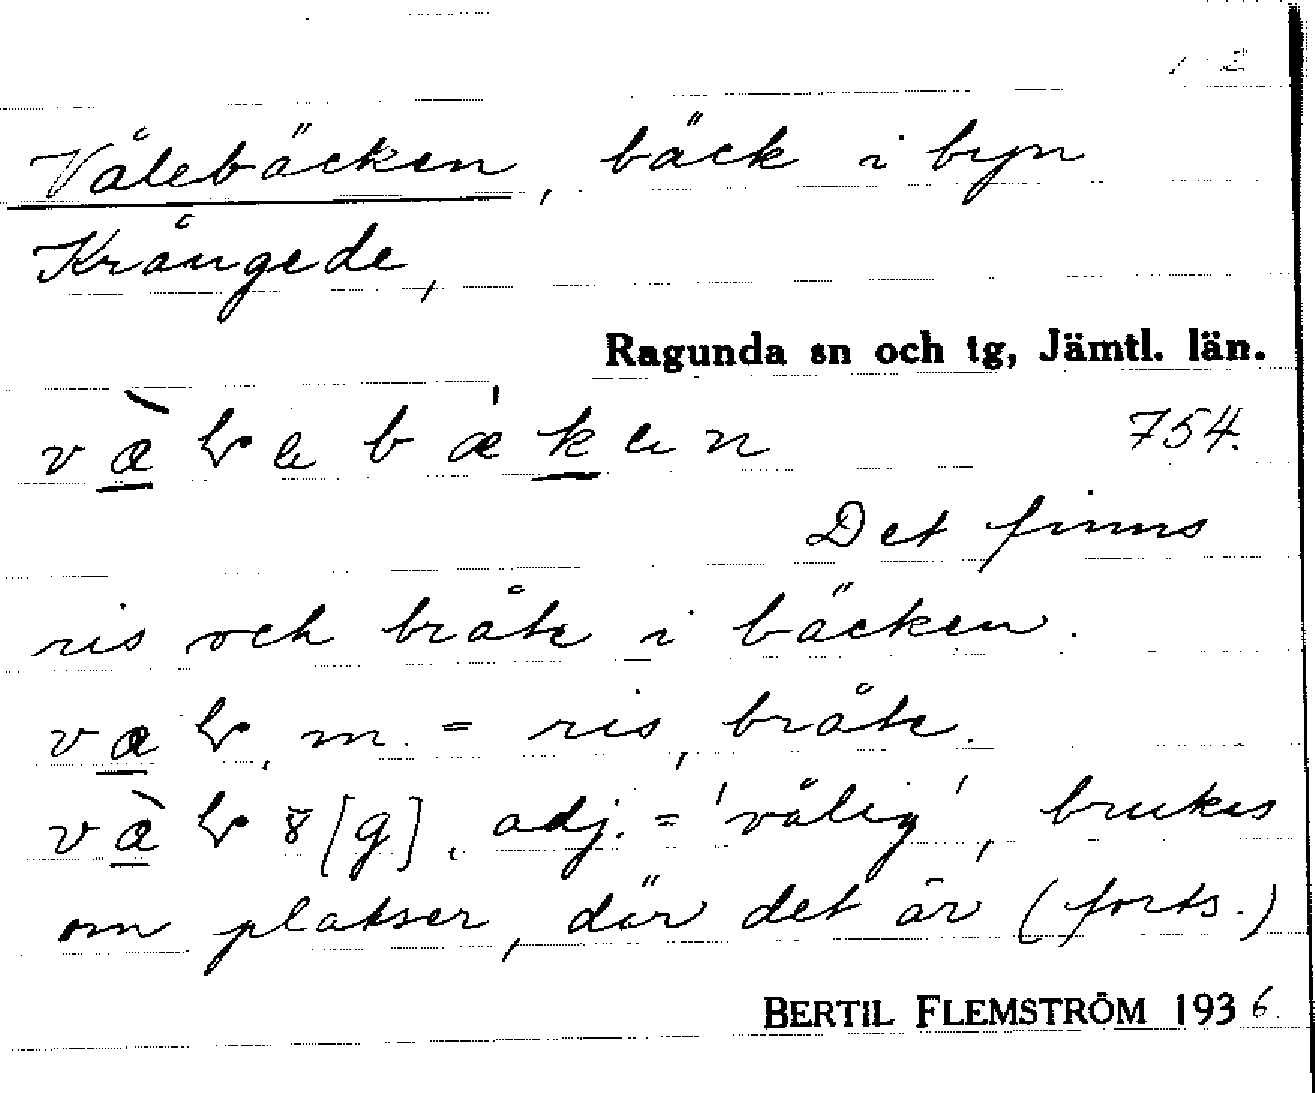 1 2
Vålebäcken, bäck i byn
Krångede,
Ragunda sn och tg, Jämtl. län.
754.
Det finns
ris och bråte i bäcken.
m. = ris, bråte.
[g], adj. = 'vålig', brukas
om platser, där det är (forts.)
BERTIL FLEMSTRÖM 1936